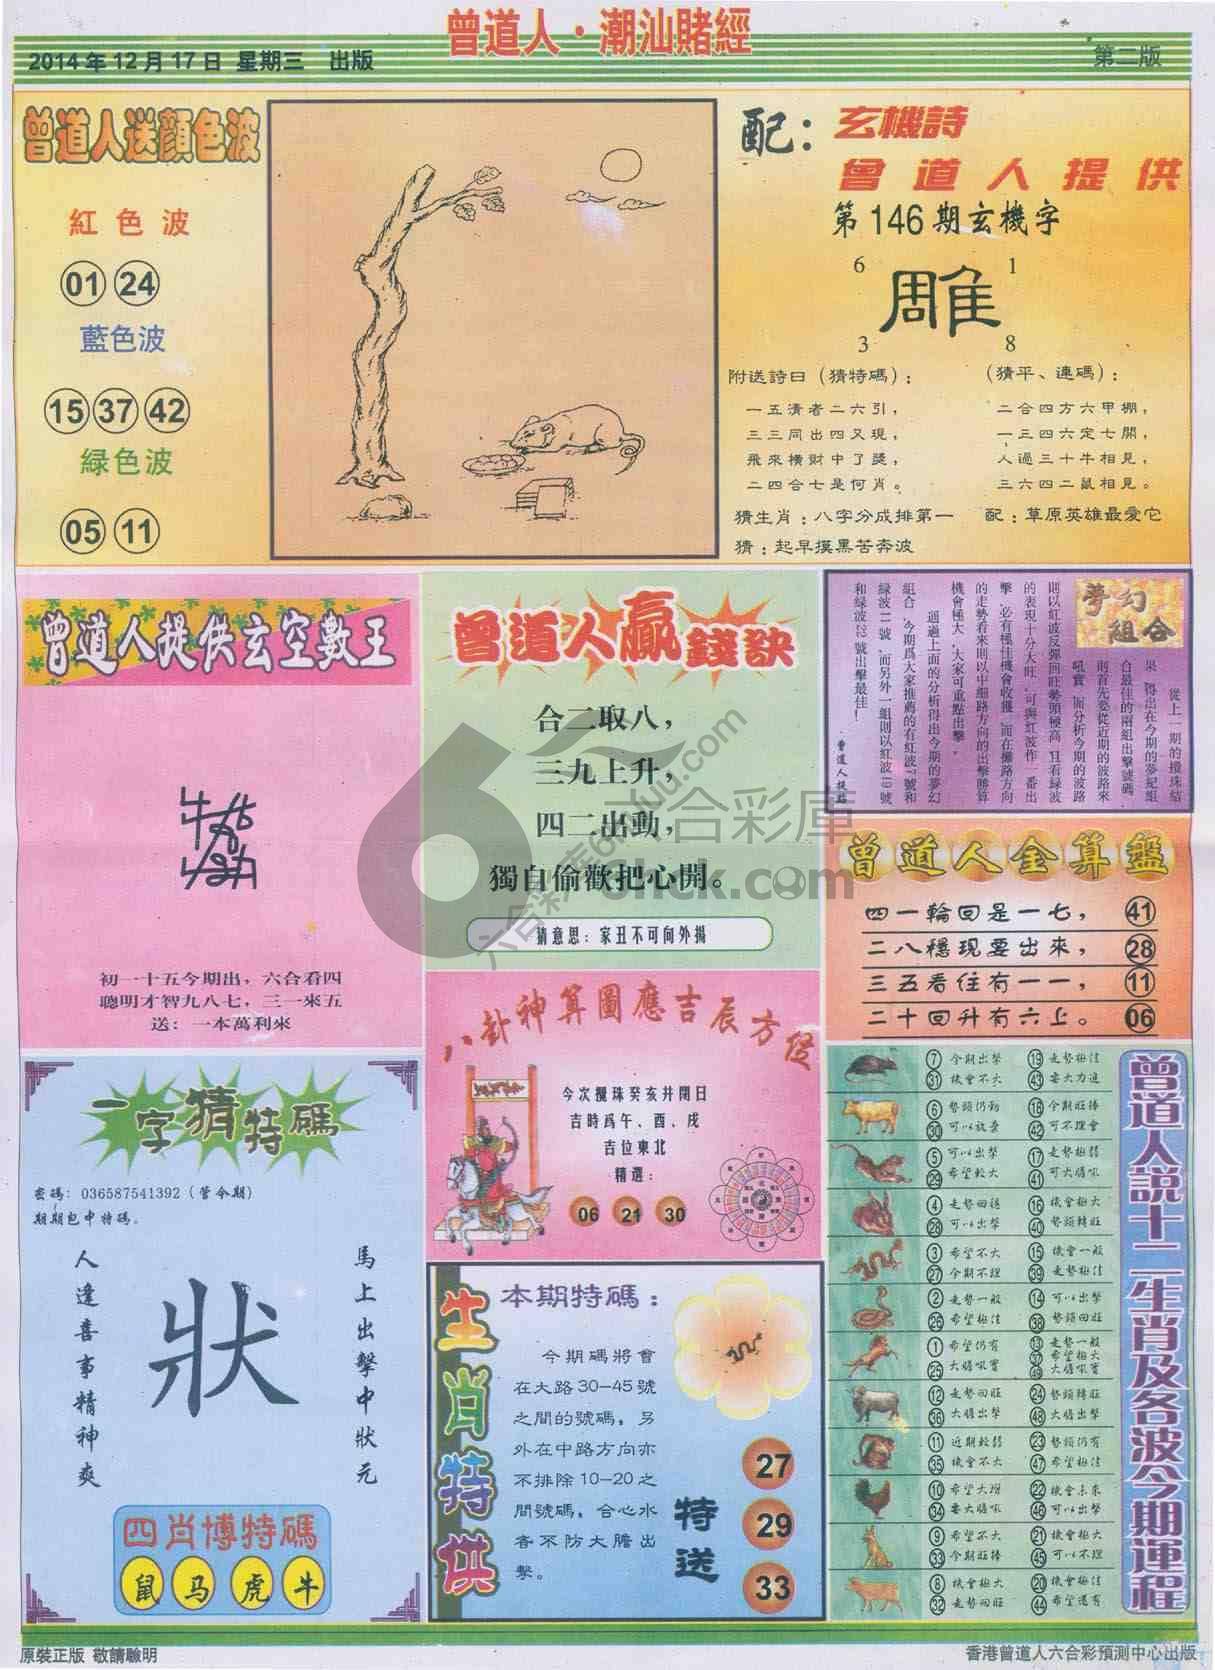 曾道人·潮汕賭經
2014年12月17日 星期三 出版
第二版
曾道人送顏色波
紅色波
01 24
藍色波
15 37 42
綠色波
05 11
配：玄機詩
曾道人提供
第146期玄機字
6 1
雕
3 8
附送詩曰（猜特碼）：
一五清者二六引，
三三同出四又現，
飛來橫財中了獎，
二四合七是何肖。
（猜平、連碼）：
二合四方六甲棚，
一三四六定七開，
人過三十牛相見，
三六四二鼠相見。
猜生肖：八字分成排第一
配：草原英雄最愛它
猜：起早摸黑苦奔波
曾道人提供玄空數王
初一十五今期出，六合看四
聰明才智九八七，三一來五
送：一本萬利來
曾道人贏錢訣
合二取八，
三九上升，
四二出動，
獨自偷歡把心開。
猜意思：家丑不可向外揚
夢幻
組合
從上一期的攪珠結
果，得出在今期的夢紀組
台最佳的兩組出擊號碼，
則首先要從近期的波路來
吼實，而分析今期的波路
則以紅波反彈回旺勢頭極高，且看綠波
的表現十分大旺，可與紅波作一番出
擊，必有極佳機會收獲，而在攤路方向
的走勢看來則以中細路方向的出擊勝算
機會極大，大家可重點出擊。
通過上面的分析得出今期的夢幻
組合，今期爲大家推薦的有紅波7號和
綠波11號，而另外一組則以紅波19號
和綠波22號出擊最佳！
曾道人提監
曾道人金算盤
四一輪回是一七， 41
二八穩現要出來， 28
三五看往有一一， 11
二十回升有六上。 06
八卦神算圖應吉辰方位
今次攪珠癸亥井閉日
吉時爲午、酉、戌
吉位東北
精選：
06 21 30
一字猜特碼
密碼：036587541392（管令期）
期期包中特碼。
馬上出擊中狀元
狀
人逢喜事精神爽
四肖博特碼
鼠 马 虎 牛
生肖特供
本期特碼：
今期碼將會
在大路30-45號
之間的號碼，另
外在中路方向亦
不排除10-20之
間號碼，合心水
者不防大膽出
擊。
特送
27
29
33
曾道人說十二生肖及各波今期運程
7 今期出擊 19 走勢極佳
31 機會不大 43 要大力追
6 勢頭仍勁 18 今期旺捧
30 可以放棄 42 可不理會
5 可以出擊 17 走勢極弱
29 希望較大 41 可大膽吼
4 走勢回穩 16 機會極大
28 可以出擊 40 勢頭轉旺
3 希望不大 15 機會一般
27 今期不理 39 走勢極佳
2 走勢一般 14 可以出擊
26 希望極佳 38 勢頭回旺
1 希望仍有 13 走勢一般
37 希望極大
25 大膽吼實 49 大膽吼實
12 走勢回旺 24 勢頭轉旺
36 大膽出擊 48 大膽出擊
11 近期較弱 23 勢頭仍有
35 機會不大 47 希望極佳
10 希望大增 22 機會未來
34 要大膽吼 46 可以出擊
9 希望不大 21 機會極大
33 今期旺捧 45 可以不理
8 機會極大 20 機會極佳
32 走勢回旺 44 希望還有
六合彩庫
6hck.com
原裝正版 敬請驗明
香港曾道人六合彩預測中心出版